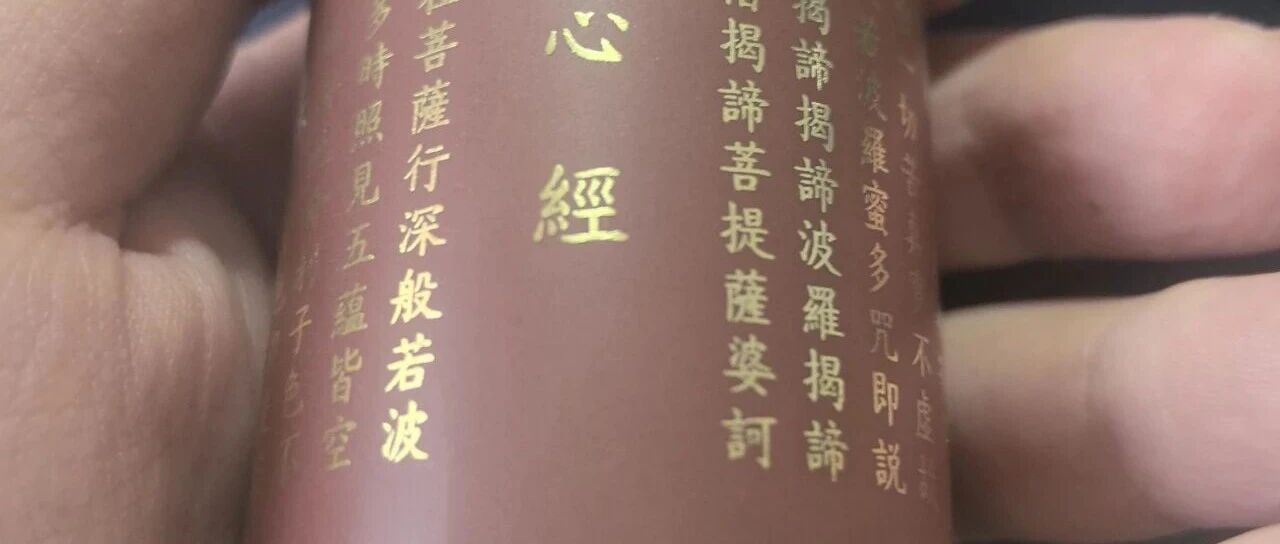 一切苦真實不虛
若波羅蜜多咒即説
揭諦揭諦波羅揭諦
揭諦菩提薩婆訶
心經
菩薩行深般若波
多時照見五蘊皆空
子色不